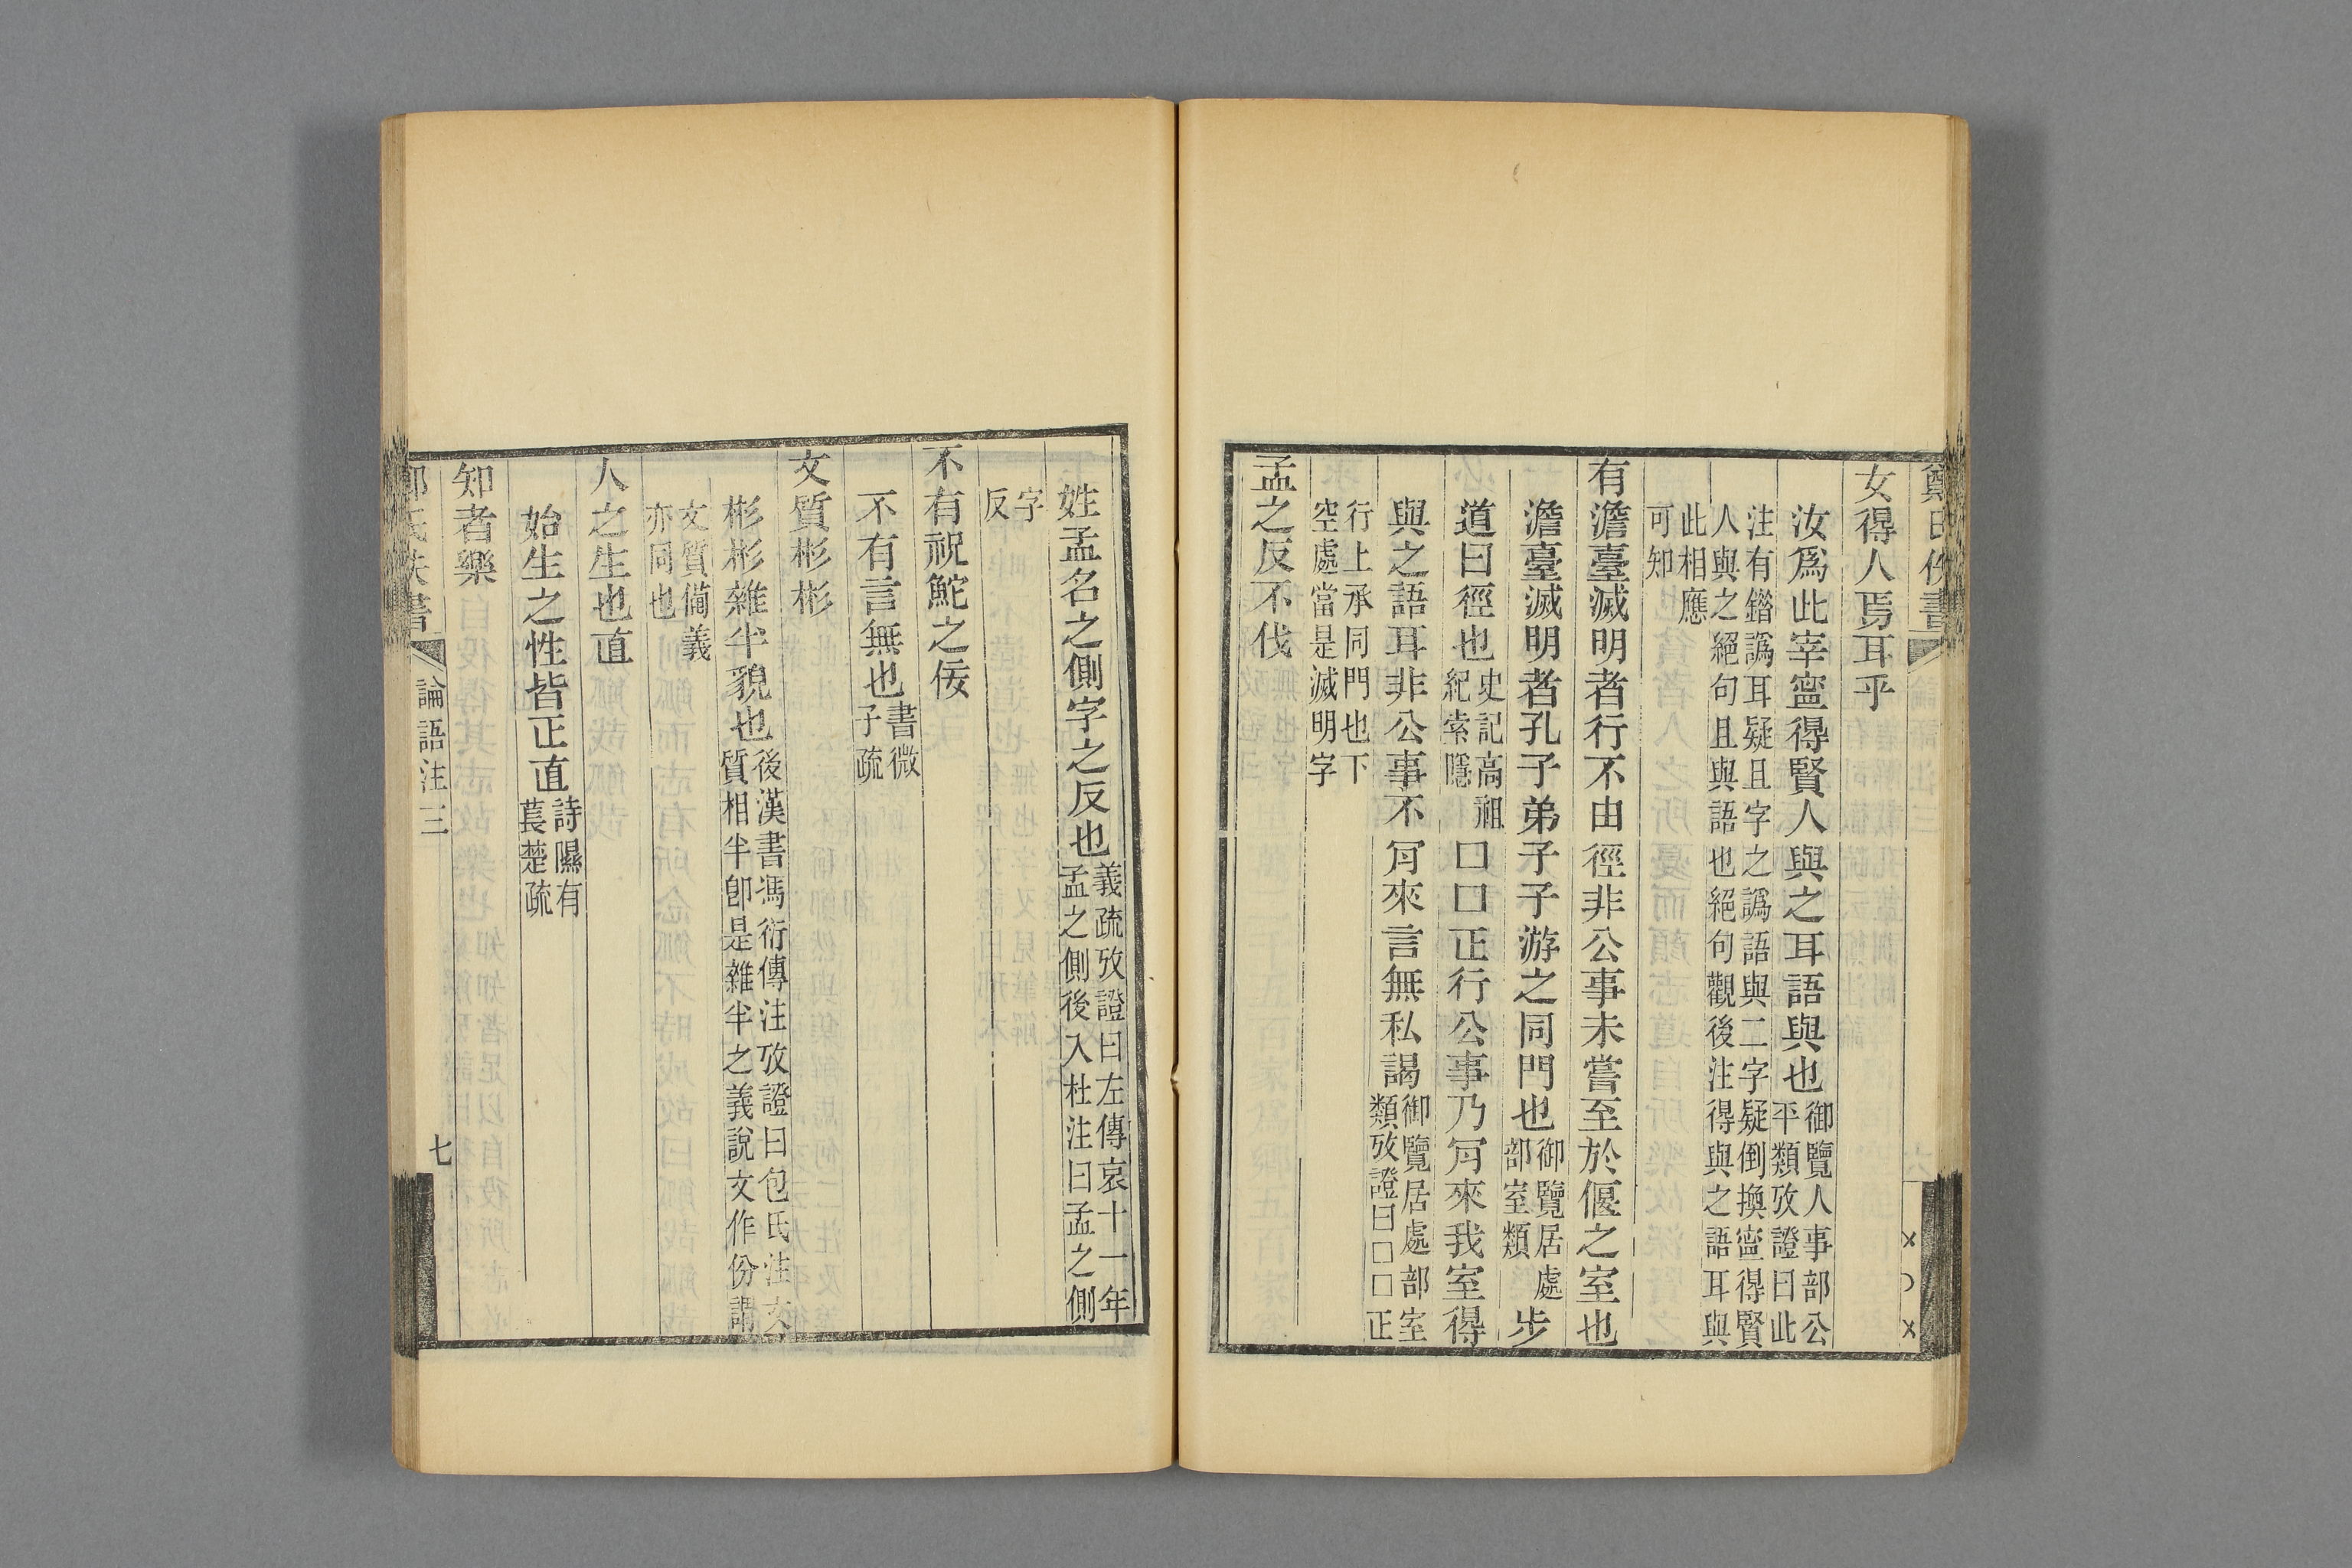 女得人焉耳乎
汝爲此宰寍得賢人與之耳語與也御覽人事部公
平類攷證曰此
注有鍇譌耳疑且字之譌語與二字疑倒換寍得賢
人與之絕句且與語也絕句觀後注得與之語耳與
此相應
可知
有澹臺滅明者行不由徑非公事未嘗至於偃之室也
澹臺滅明者孔子弟子子游之同門也御覽居處
部室類
步
道曰徑也史記高祖
紀索隱
口口正行公事乃肎來我室得
與之語耳非公事不肎來言無私謁御覽居處部室
類攷證曰□□正
行上承同門也下
空處當是滅明字
孟之反不伐
姓孟名之側字之反也義疏攷證曰左傳哀十一年
孟之側後入杜注曰孟之側
字
反
不有祝鮀之佞
不有言無也書微
子疏
文質彬彬
彬彬雜半貌也後漢書馮衍傳注攷證曰包氏注文
質相半卽是雜半之義說文作份謂
文質僃義
亦同也
人之生也直
始生之性皆正直詩隰有
萇楚疏
知者樂
論語注三
七